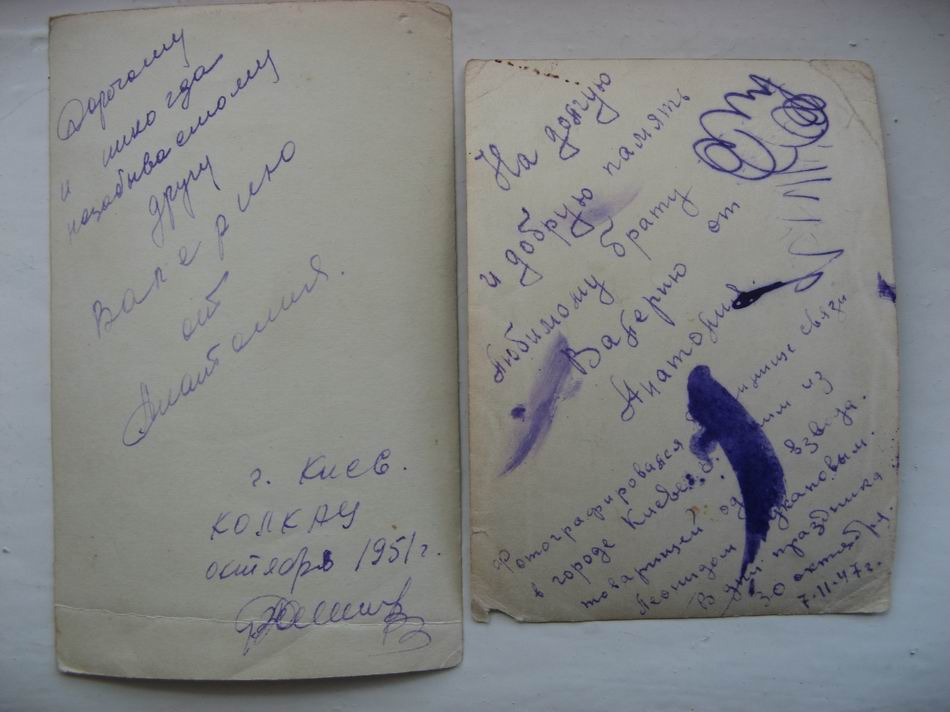 Дорогому
и нико гда
незабываемому
другу
Валерию
от
Анатолия.
г. Киев.
октября 1951 г.
На долгую
и добрую память
Любимому брату
Валерию от
Анатолия.
Фотографировался в связи
в городе Киеве. с
товарищей из взвода.
Леонидом
В дни праздника
30 октября.
7-11-47 г.